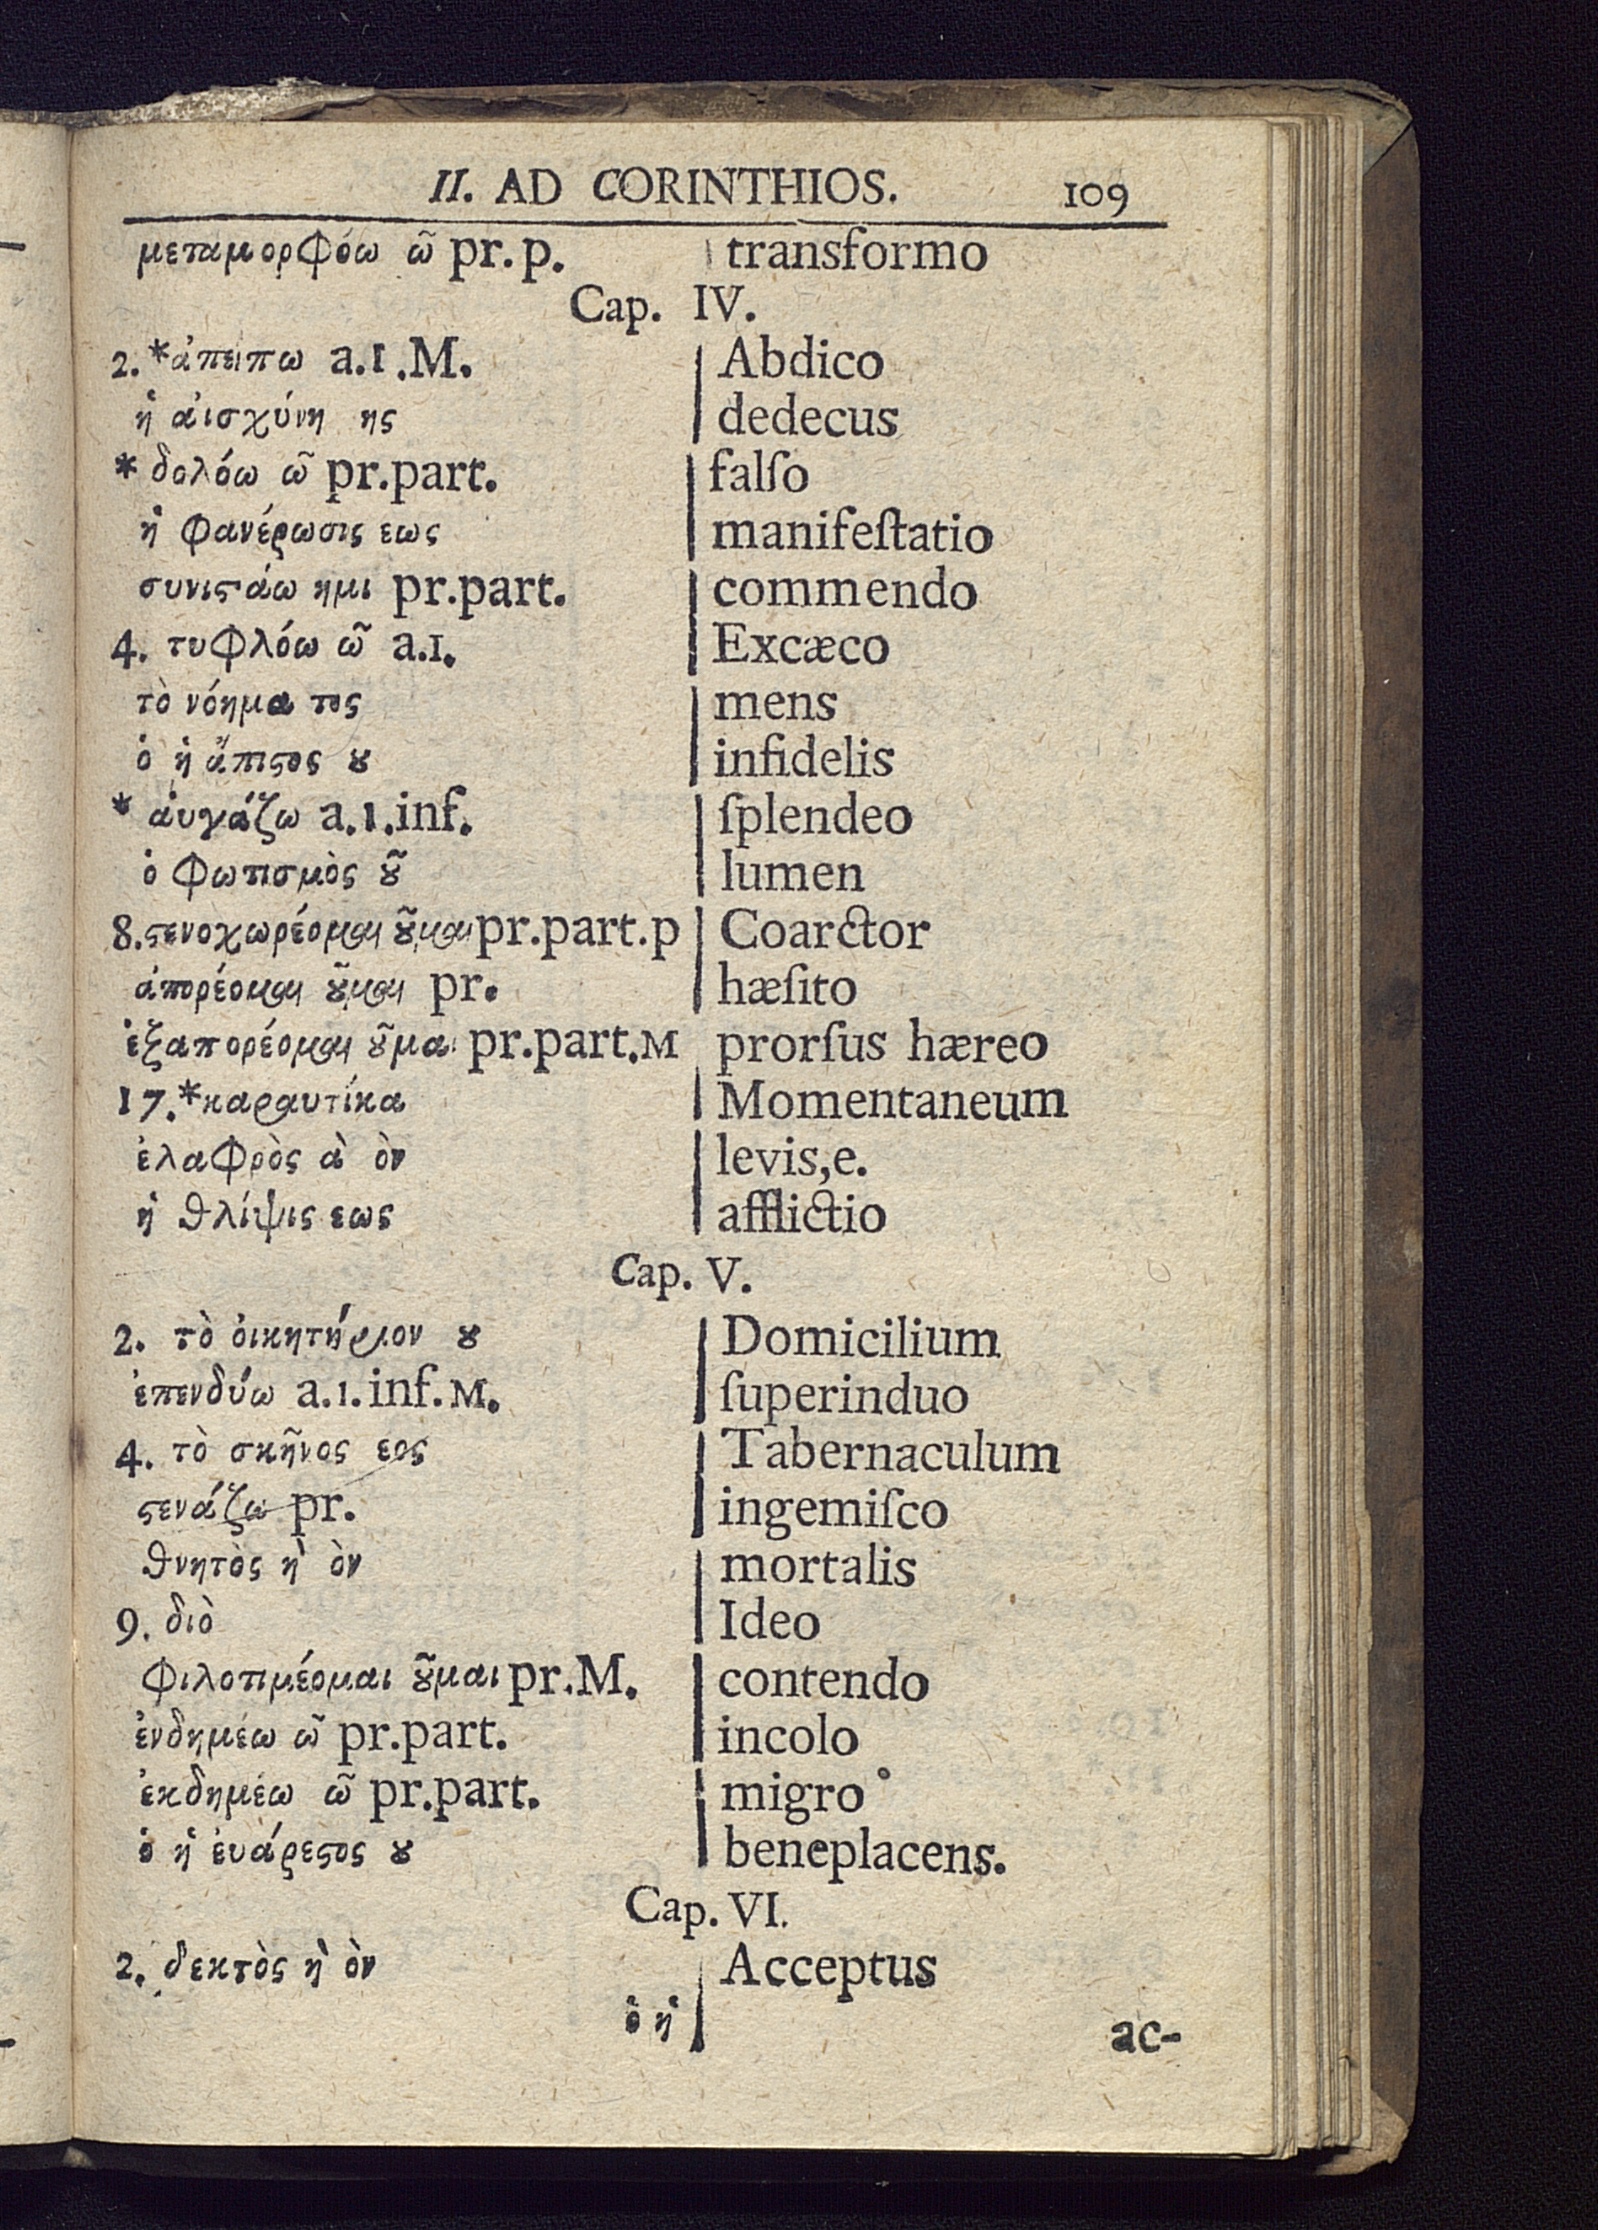 II. AD CORINTHIOS. 109
μεταμορφόω ῶ pr.p. transformo
Cap. IV.
2. *ἀπείπω a.1.M. Abdico
ἡ αἰσχύνη ης dedecus
* δολόω ῶ pr.part. falſo
ἡ φανέρωσις εως manifeſtatio
συνιϛάω ημι pr.part. commendo
4. τυφλόω ῶ a.1. Excæco
τὸ νόημα τος mens
ὁ ἡ ἄπιϛος ȣ infidelis
* ἀυγάζω a.1.inf. ſplendeo
ὁ φωτισμὸς ȣ͂ lumen
8. ϛενοχωρέομαι ȣ͂μαι pr.part.p Coarctor
ἀπορέομαι ȣ͂μαι pr. hæſito
ἐξαπορέομαι ȣ͂μαι pr.part.M prorſus hæreo
17. *καραυτίκα Momentaneum
ἐλαφρὸς ὰ ὸν levis,e.
ἡ θλίψις εως afflictio
Cap. V.
2. τὸ ὀικητήριον ȣ Domicilium
ἐπενδύω a.1.inf.M. ſuperinduo
4. τὸ σκῆνος εος Tabernaculum
ϛενάζω pr. ingemiſco
θνητὸς ὴ ὸν mortalis
9. διὸ Ideo
φιλοτιμέομαι ȣ͂μαι pr.M. contendo
ἐνδημέω ῶ pr.part. incolo
ἐκδημέω ῶ pr.part. migro
ὁ ἡ ἐυάρεϛος ȣ beneplacens.
Cap. VI.
2. δεκτὸς ὴ ὸν Acceptus
ὁ ἡ ac-